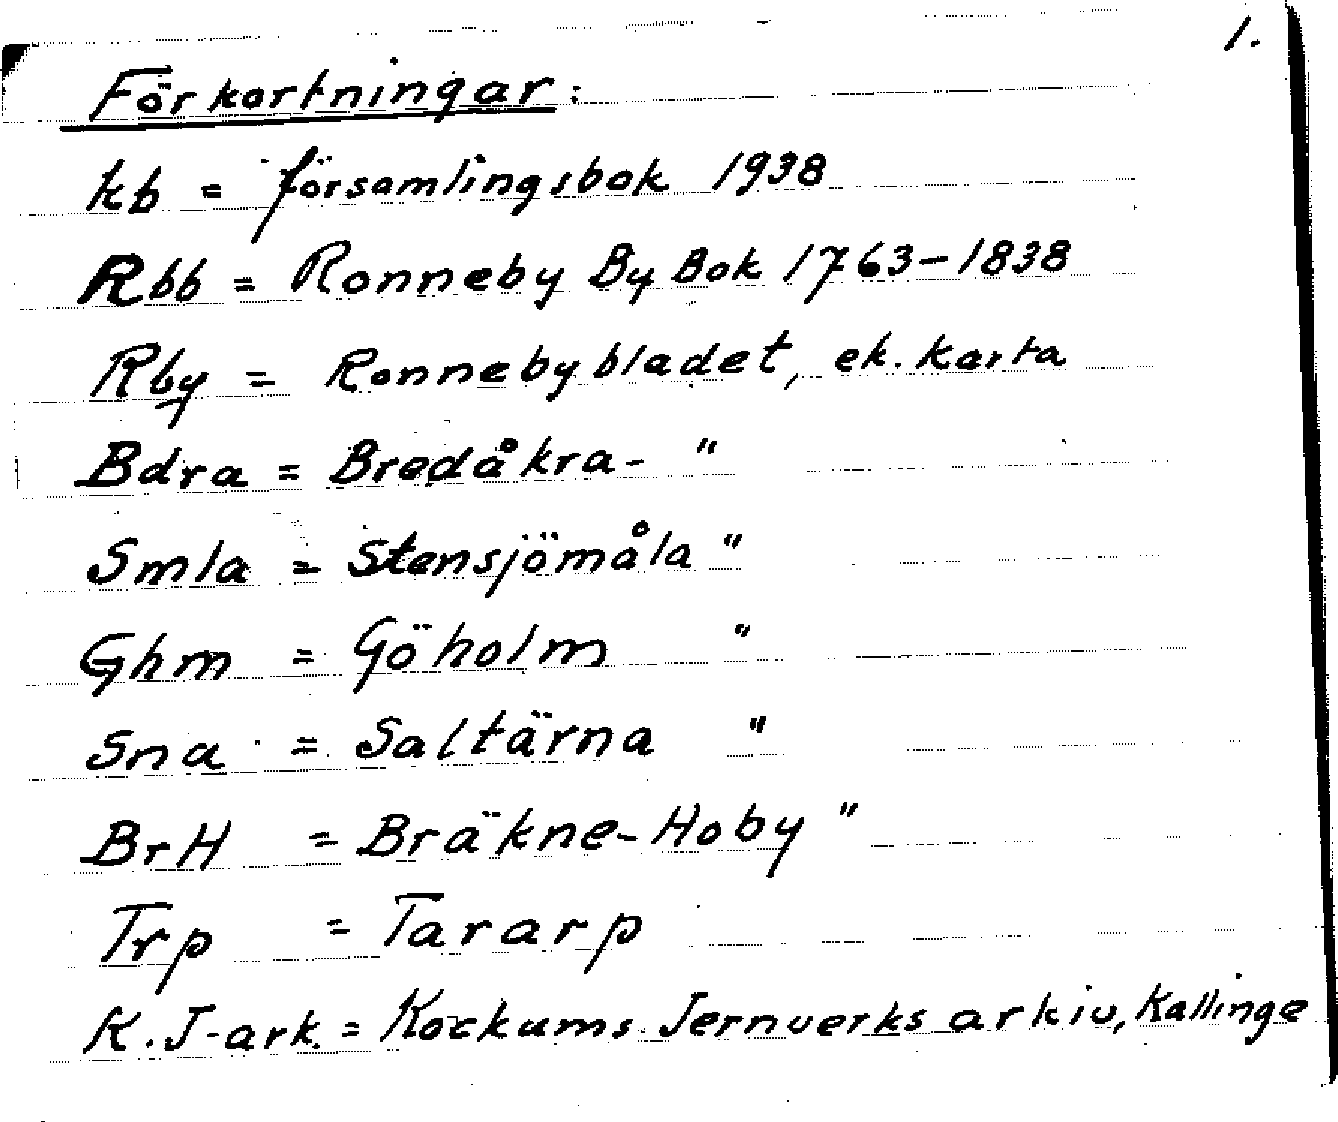 1.
Förkortningar:
kb = församlingsbok 1938
Rbb = Ronneby By Bok 1763-1838
Rby = Ronnebybladet, ek. karta
Bdra = Bredåkra- "
Smla = Stensjömåla "
Ghm = Göholm "
Sna = Saltärna "
BrH = Bräkne-Hoby "
Trp = Tararp
K.J-ark. = Kockums Jernverks arkiv, Kallinge